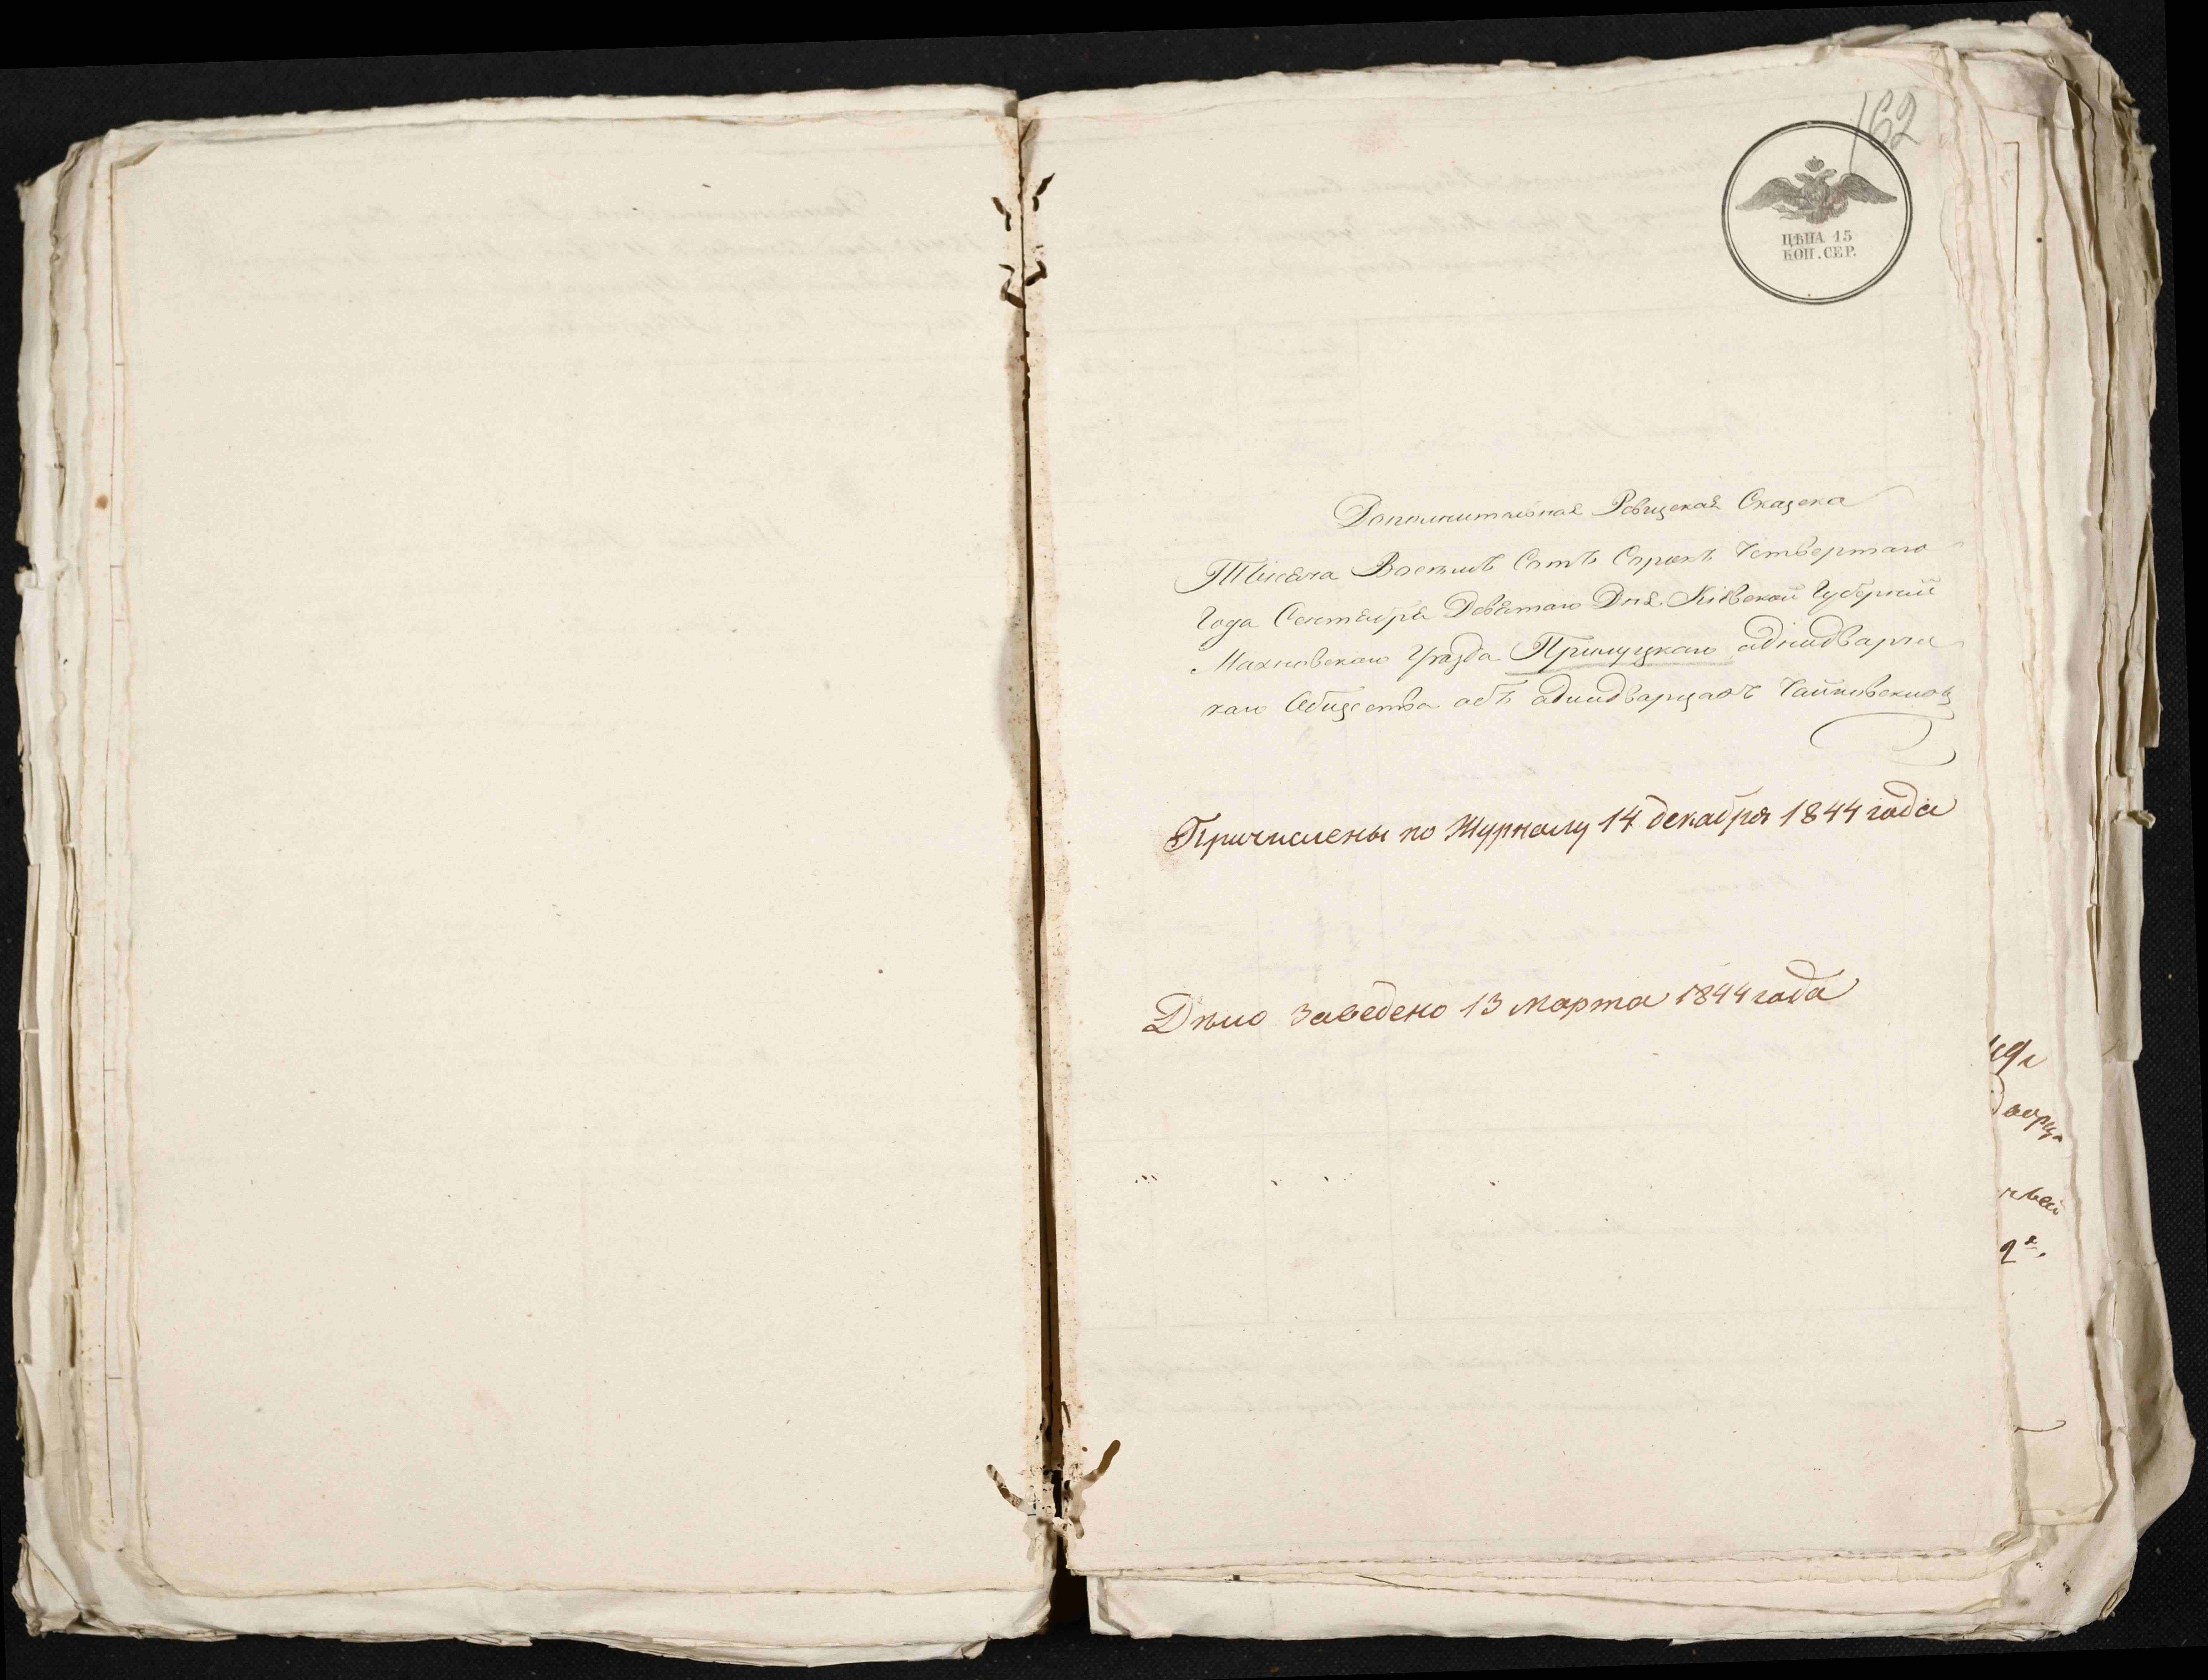 162
ЦѢНА 15
КОП. СЕР.
Дополнительная Ревизская Сказска
Тысяча Восемь Сотъ Сорокъ Четвертаго
Года Сентября Девятаго Дня Кіевской Губерніи
Махновскаго Уѣзда Прилуцкаго аднидварче
скаго Общества абъ аднидварцахъ Чайковскихъ
Причислены по Журналу 14 декабря 1844 года
Дѣло заведено 13 марта 1844 года